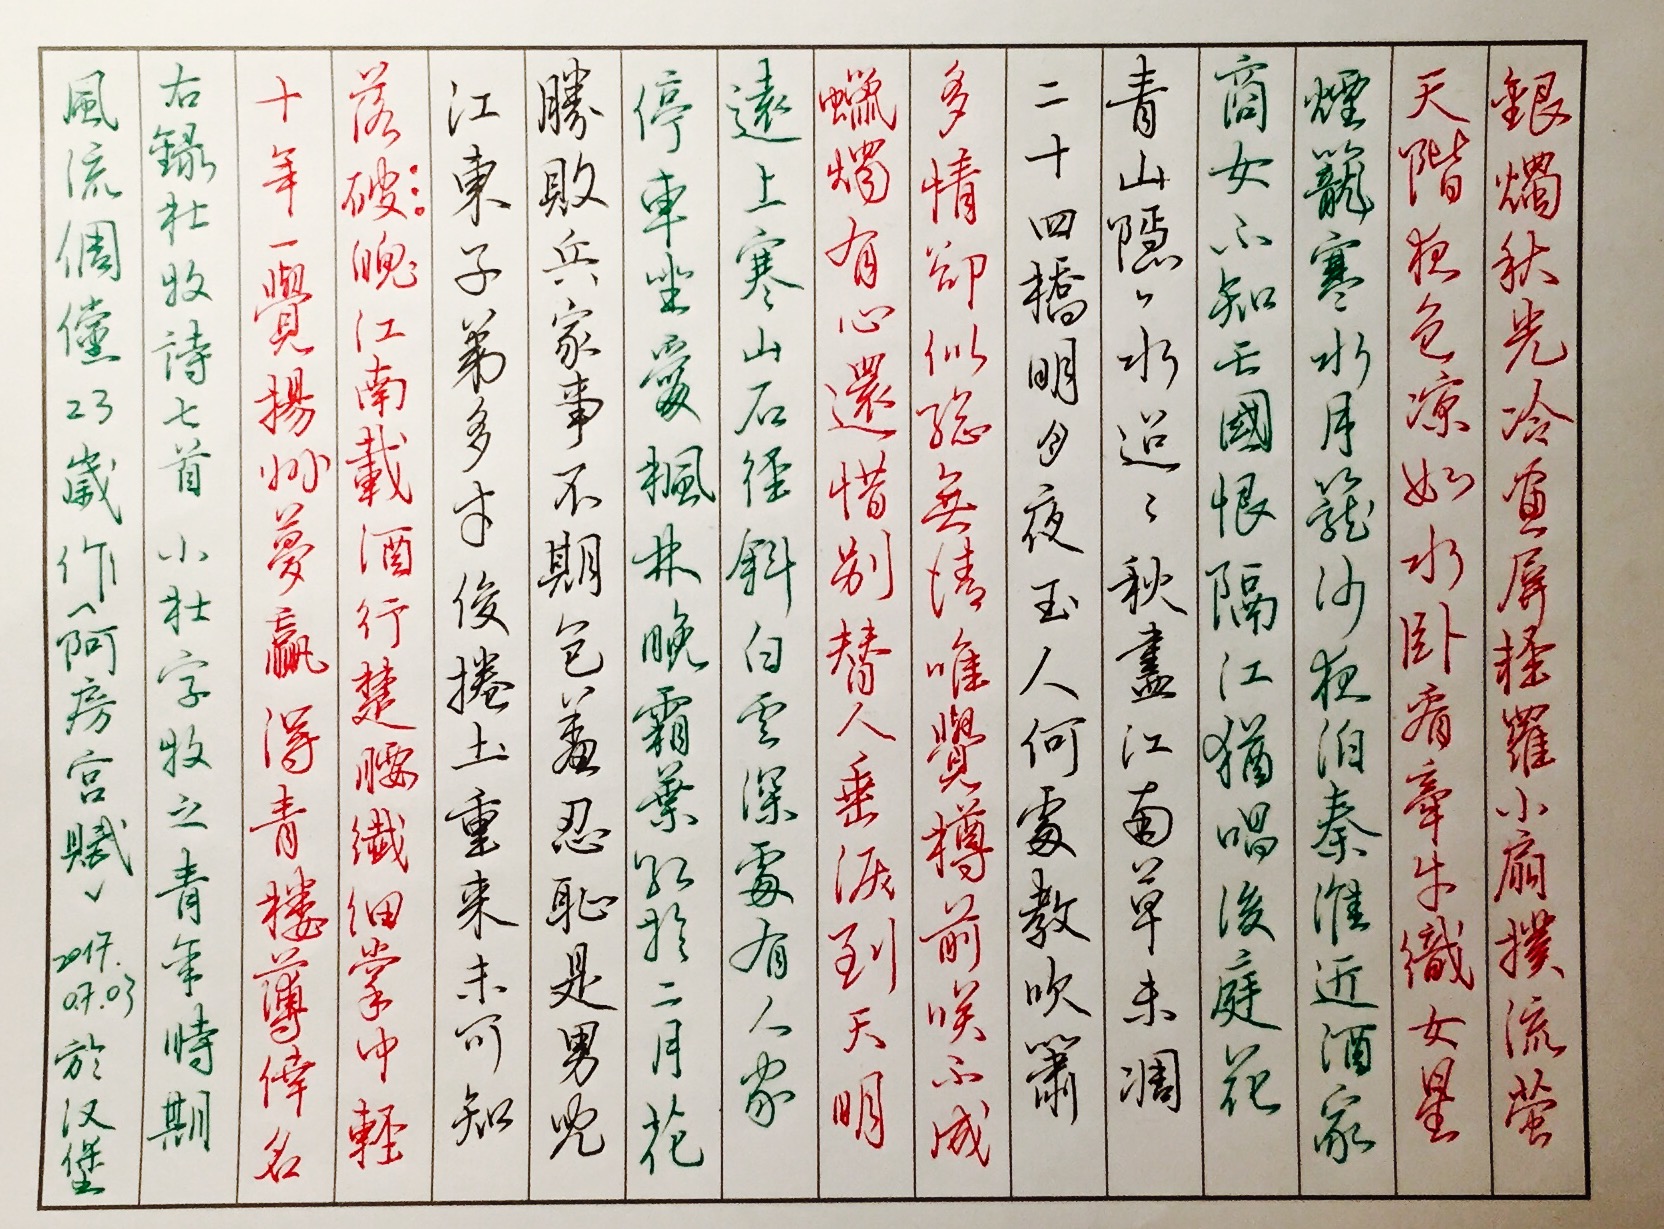 銀燭秋光冷畫屏輕羅小扇撲流螢
天階夜色涼如水卧看牽牛織女星
煙籠寒水月籠沙夜泊秦淮近酒家
商女不知亡國恨隔江猶唱後庭花
青山隱〻水迢〻秋盡江南草未凋
二十四橋明月夜玉人何處教吹簫
多情卻似總無情唯覺樽前咲不成
蠟燭有心還惜別替人垂淚到天明
遠上寒山石徑斜白雲深處有人家
停車坐愛楓林晚霜葉紅於二月花
勝敗兵家事不期包羞忍恥是男兒
江東子弟多才俊捲土重來未可知
落破魄江南載酒行楚腰纖細掌中輕
十年一覺揚州夢贏得青樓薄倖名
右錄杜牧詩七首 小杜字牧之青年時期
風流倜儻23歲作《阿房宮賦》 2017.07.03 於汉堡